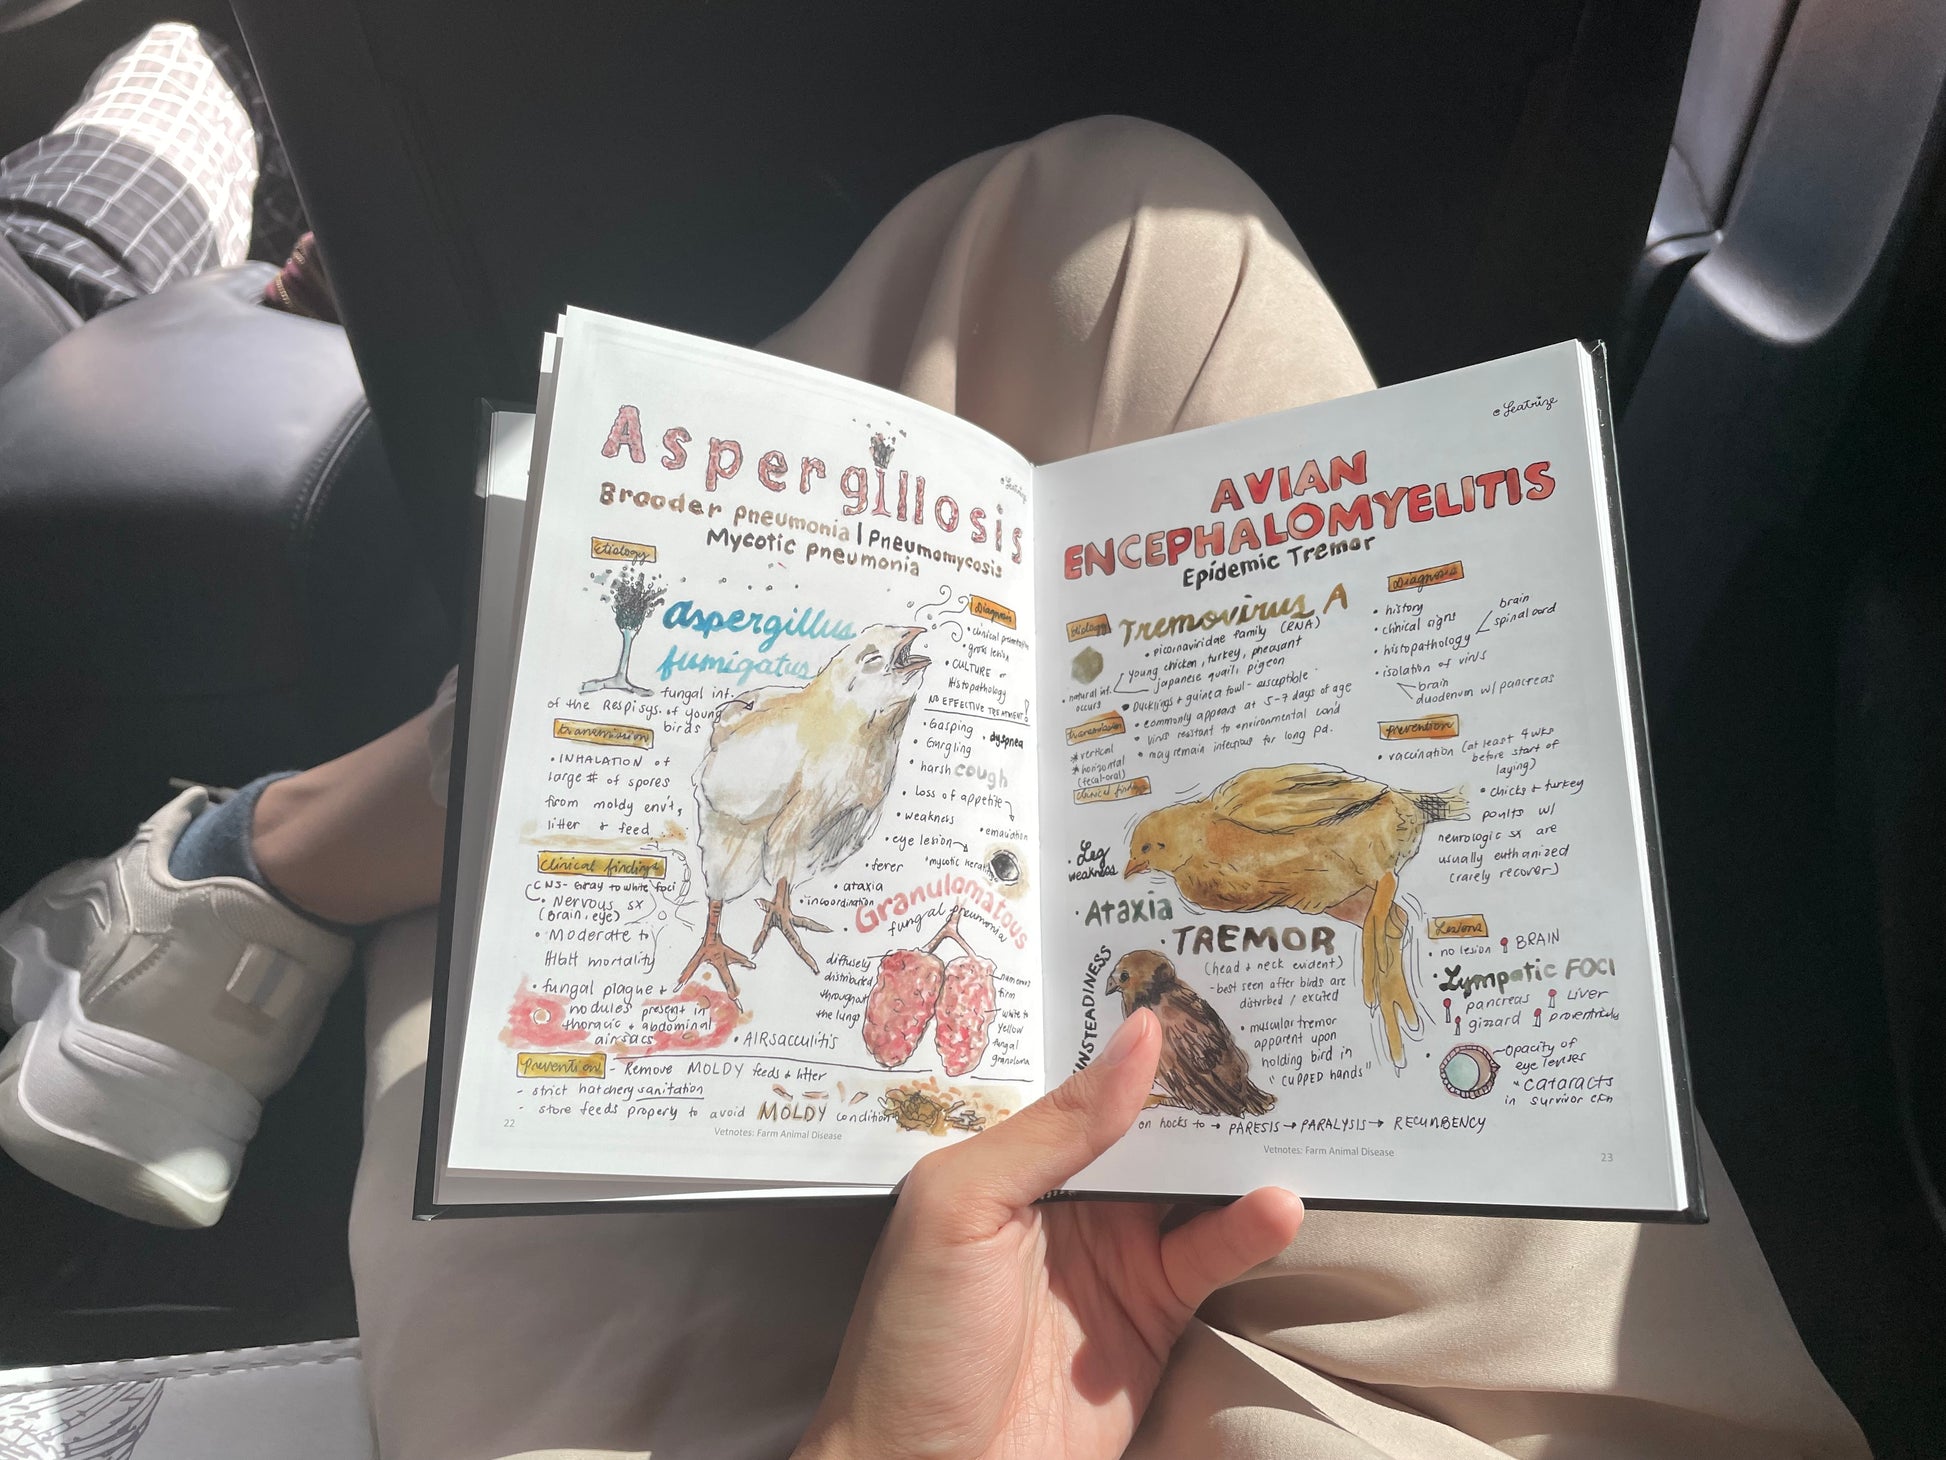 Aspergillosis
Brooder pneumonia | Pneumomycosis
Mycotic pneumonia
Etiology
Aspergillus
fumigatus
fungal inf.
of the Respi sys. of young
birds
Transmission
• INHALATION of
large # of spores
from moldy env't,
litter + feed
Clinical findings
CNS - Gray to white foci
• Nervous sx
(Brain, eye)
• Moderate to
HIGH mortality
• fungal plaque +
nodules present in
thoracic + abdominal
airsacs
• AIRsacculitis
Diagnosis
• clinical presentation
• gross lesion
• CULTURE or
Histopathology
NO EFFECTIVE TREATMENT!
• Gasping
• dyspnea
• Gurgling
• harsh cough
• loss of appetite
• emaciation
• weakness
• eye lesion
• mycotic keratitis
• fever
• ataxia
• incoordination
• Granulomatous
fungal pneumonia
diffusely
distributed
throughout
the lungs
numerous
firm
white to
yellow
fungal
granuloma
Prevention - Remove MOLDY feeds + litter
- strict hatchery sanitation
- store feeds propery to avoid MOLDY condition
22
Vetnotes: Farm Animal Disease
AVIAN
ENCEPHALOMYELITIS
Epidemic Tremor
Etiology
Tremovirus A
• picornaviridae family (RNA)
• natural inf.
occurs
young chicken, turkey, pheasant
japanese quail, pigeon
• Ducklings + guinea fowl - susceptible
• commonly appears at 5-7 days of age
• virus resistant to environmental cond'n
• may remain infectious for long pd.
Transmission
* vertical
* horizontal
(fecal-oral)
Clinical findings
• Leg
weakness
• Ataxia
• TREMOR
(head + neck evident)
- best seen after birds are
disturbed / excited
• muscular tremor
apparent upon
holding bird in
"CUPPED hands"
UNSTEADINESS
on hocks to → PARESIS → PARALYSIS → RECUMBENCY
Diagnosis
• history
• clinical signs
• histopathology
brain
spinal cord
• isolation of virus
brain
duodenum w/ pancreas
Prevention
• vaccination (at least 4 wks
before start of
laying)
• chicks + turkey
poults w/
neurologic sx are
usually euthanized
(rarely recover)
Lesions
• no lesion BRAIN
• Lympatic FOCI
pancreas
LIVER
gizzard
proventriculus
• Opacity of
eye lenses
CATARACTS
in survivor
Vetnotes: Farm Animal Disease
23